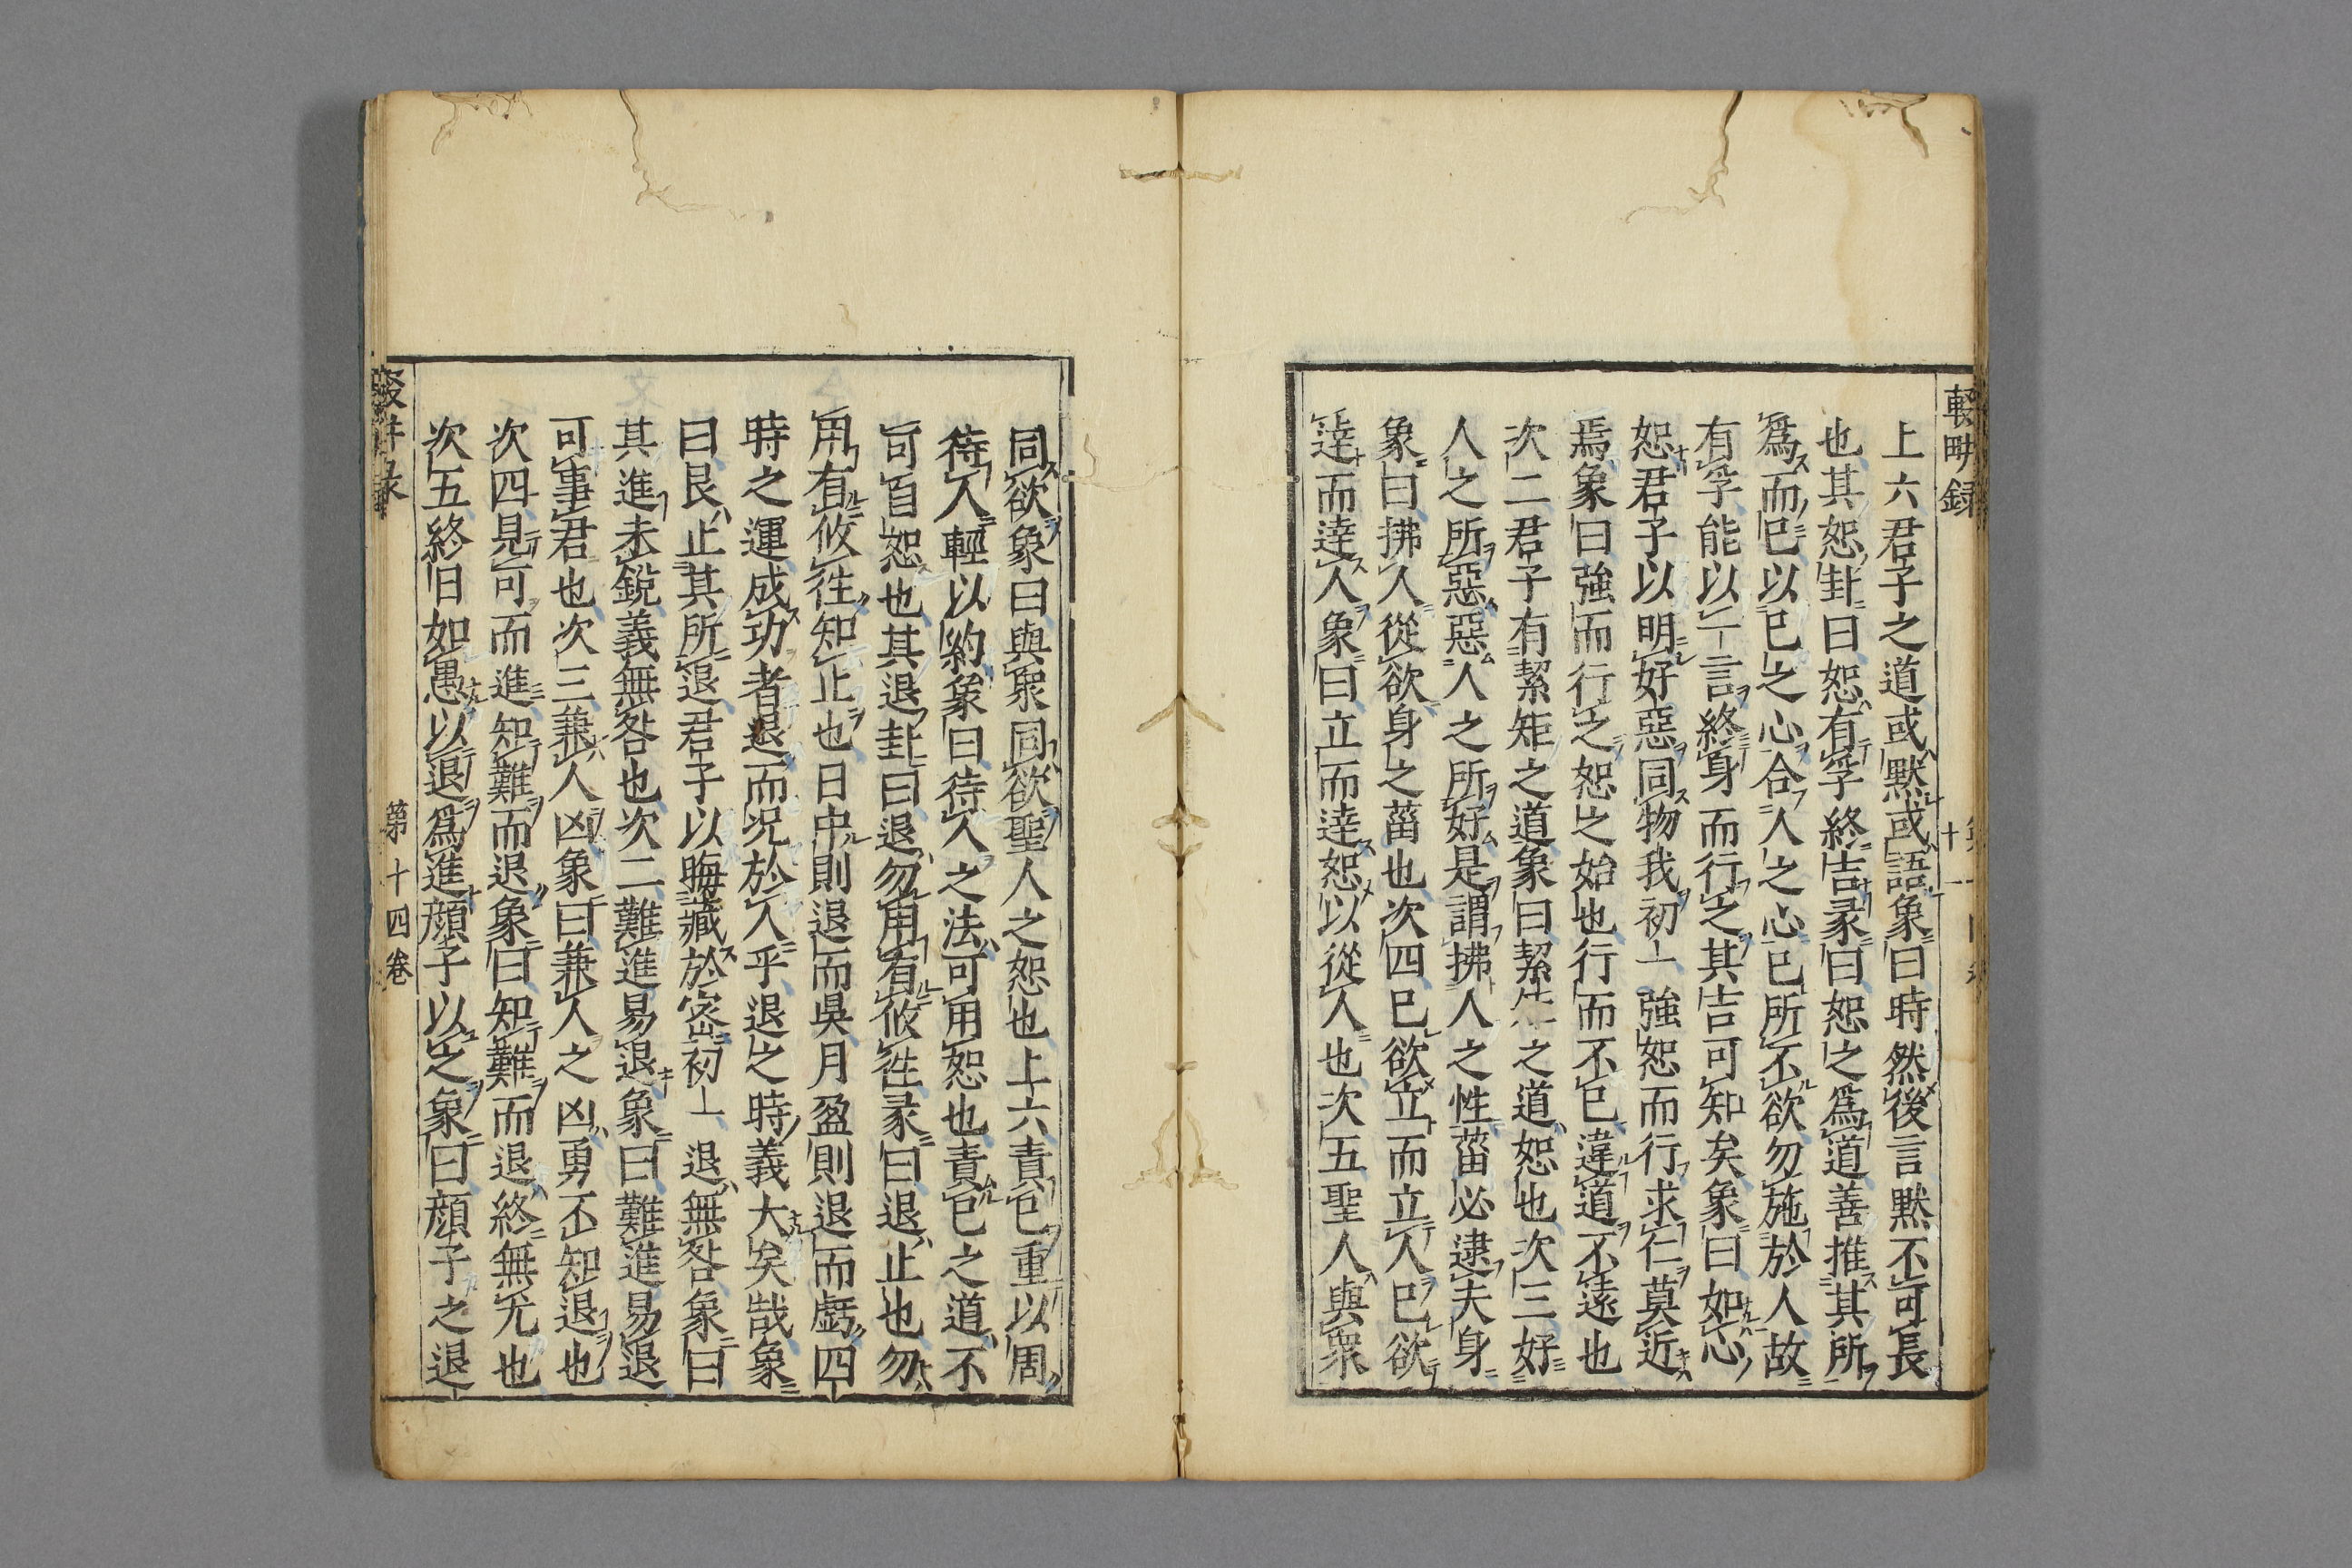 輟畊録
十一
上六君子之道或黙或語象曰時然後言黙不可長
也其恕卦曰恕有孚終吉彖曰恕之爲道善推其所
爲而已以已之心合人之心已所不欲勿施於人故
有孚能以一言終身而行之其吉可知矣象曰如心
恕君子以明好惡同物我初一強恕而行求仁莫近
焉象曰強而行之恕之始也行而不已違道不遠也
次二君子有絜矩之道象曰絜矩之道恕也次三好
人之所惡惡人之所好是謂拂人之性菑必逮夫身
象曰拂人從欲身之菑也次四已欲立而立人已欲
達而達人象曰立而達恕以從人也次五聖人與衆
同欲象曰與衆同欲聖人之恕也上六責已重以周
待人輕以約象曰待人之法可用恕也責已之道不
可自恕也其退卦曰退勿用有攸往彖曰退止也勿
用有攸往知止也日中則退而昃月盈則退而虧四
時之運成功者退而况於人乎退之時義大矣哉象
曰艮止其所退君子以晦藏於密初一退無咎象曰
其進未銳義無咎也次二難進易退象曰難進易退
可事君也次三兼人凶象曰兼人之凶勇不知退也
次四見可而進知難而退象曰知難而退終無尤也
次五終日如愚以退爲進顔子以之象曰顔子之退
第十四卷